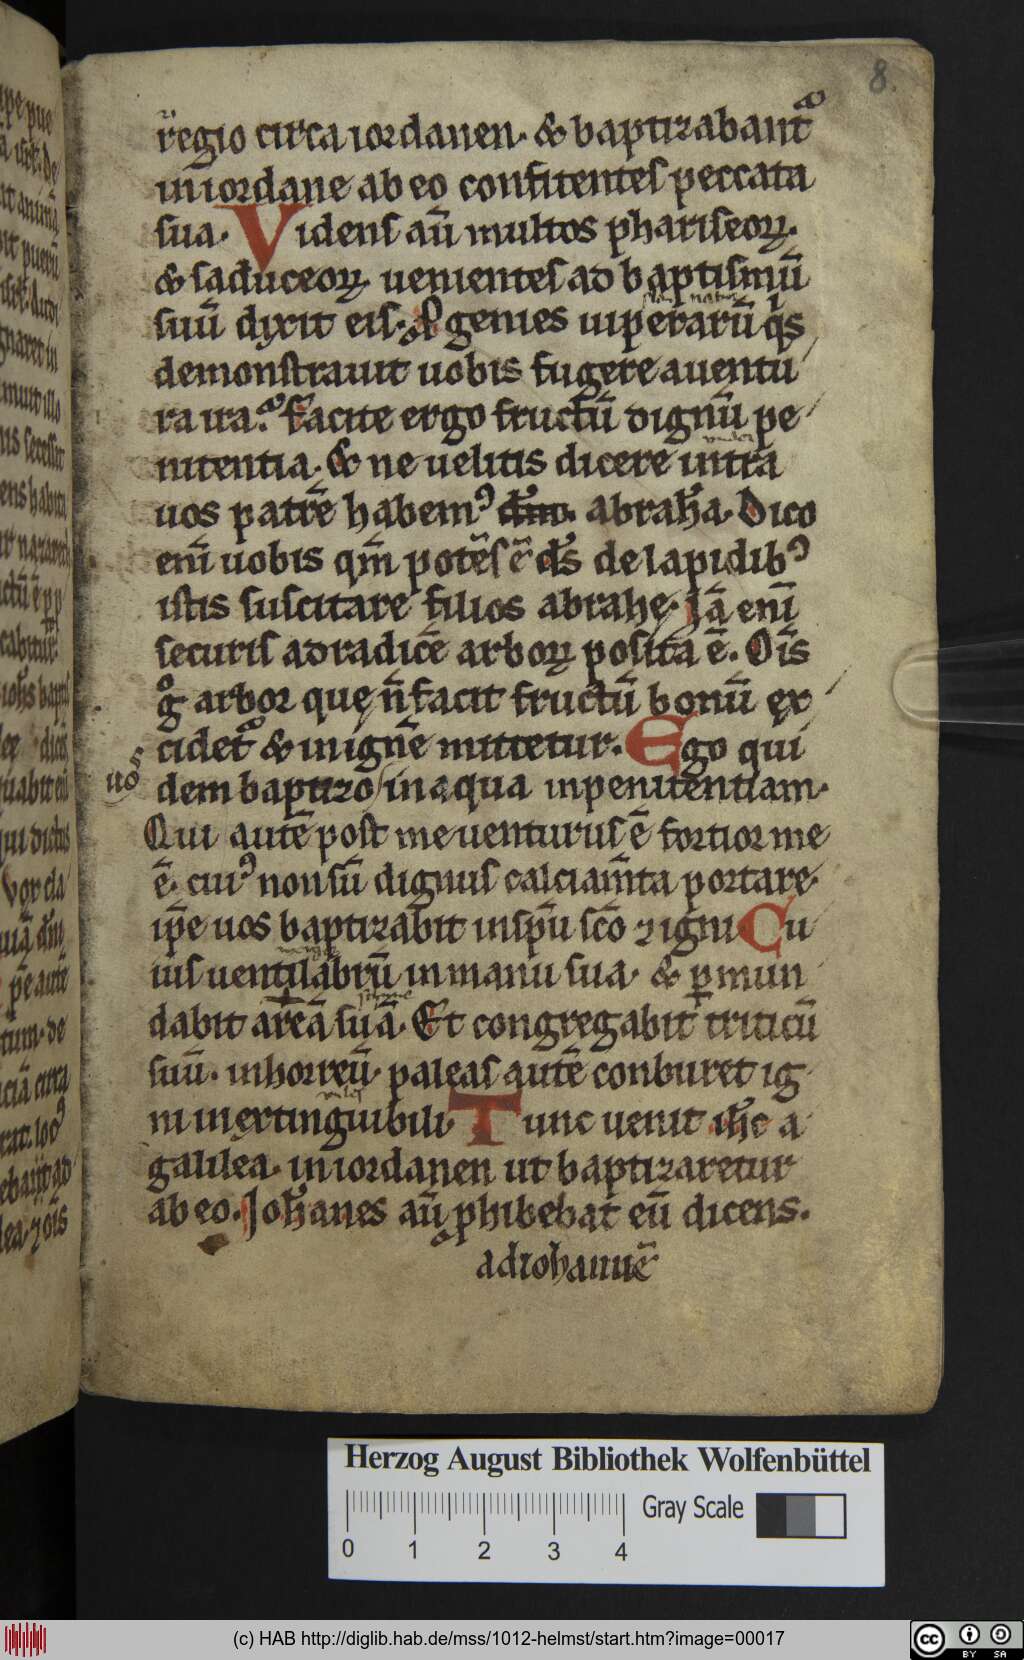 8.
regio circa iordanen. & baptizabant᷑
in iordane ab eo confitentes peccata
sua. Videns aū multos phariseoꝝ.
& saduceoꝝ uenientes ad baptismū
suū dixit eis. Progenies uiperarū qͥs
demonstrauit uobis fugere a uentu
ra ira. Facite ergo fructū dignū pe
nitentia. & ne uelitis dicere intra
uos patrē habemꝰ abrahā. Dico
enī uobis qm̄ potēs ē ds̄ de lapidibꝰ
istis suscitare filios abrahę. Iā enī
securis ad radicē arboꝝ posita ē. Oīs
gͦ arbor quę n̄ facit fructū bonū ex
cidet᷑ & in ignē mittetur. Ego qui
uos
dem baptizo in aqua in penitentiam.
Qui autē post me uenturus ē fortior me
ē. cuiꝰ non sū dignus calciam̄ta portare.
ip̄e uos baptizabit in sp̄u sc̄o ⁊ igni. Cu
ius uentilabrū in manu sua. & p̄mun
dabit areā suā. Et congregabit triticū
suū. in horreū. paleas autē conburet ig
ni inextinguibili. Tunc uenit ih̄c a
galilea. in iordanen ut baptizaretur
ab eo. Ioh̄anes aū ꝓhibebat eū dicens.
ad iohannē
Herzog August Bibliothek Wolfenbüttel
0 1 2 3 4
Gray Scale
(c) HAB http://diglib.hab.de/mss/1012-helmst/start.htm?image=00017
cc BY SA